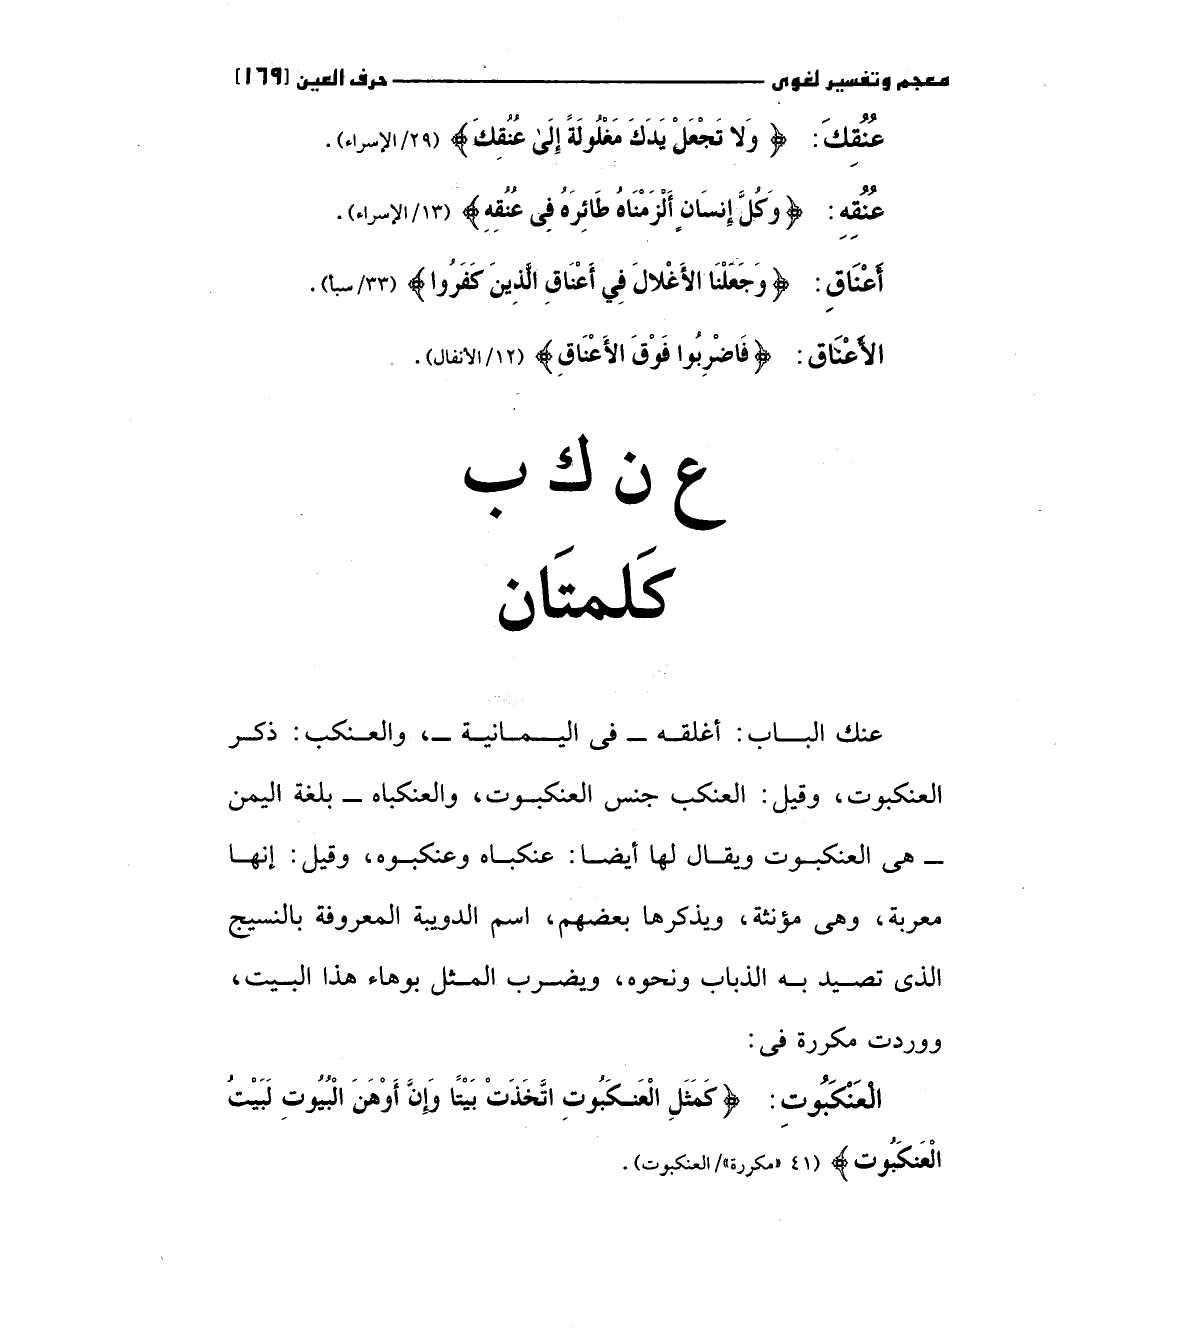 معجم وتفسير لغوى ـــــــــ حرف العين [١٦٩]
عُنُقِكَ: ﴿ وَلا تَجْعَلْ يَدَكَ مَغْلُولَةً إِلَىٰ عُنُقِكَ﴾ (٢٩/ الإسراء).
عُنُقِهِ: ﴿ وَكُلَّ إِنسَانٍ أَلْزَمْنَاهُ طَائِرَهُ فِى عُنُقِهِ﴾ (١٣/ الإسراء).
أَعْنَاقِ: ﴿ وَجَعَلْنَا الأَغْلالَ فِي أَعْنَاقِ الَّذِينَ كَفَرُوا﴾ (٣٣/ سبأ).
الأَعْنَاق: ﴿ فَاضْرِبُوا فَوْقَ الأَعْنَاقِ﴾ (١٢/ الأنفال).
ع ن ك ب
كَلمتَان
عنك البـــاب: أغلقـه ـ فى اليـمـانيـة ـ، والعـنكب: ذكـر
العنكبوت، وقيل: العنكب جنس العنكبـوت، والعنكباه ـ بلغة اليمن
ـ هى العنكبـوت ويقـال لها أيضـا: عنكبـاه وعنكبـوه، وقيل: إنهـا
معربة، وهى مؤنثة، ويذكرها بعضهم، اسم الدويبة المعروفة بالنسيج
الذى تصـيد بـه الذباب ونحوه، ويضـرب المـثل بوهاء هذا البـيت،
ووردت مكررة فى:
الْعَنْكَبُوتِ: ﴿ كَمَثَلِ الْعَنـكَبُوتِ اتَّخَذَتْ بَيْتًا وَإِنَّ أَوْهَنَ الْبُيُوتِ لَبَيْتُ
الْعَنكَبُوت﴾ (٤١ «مكررة»/ العنكبوت).